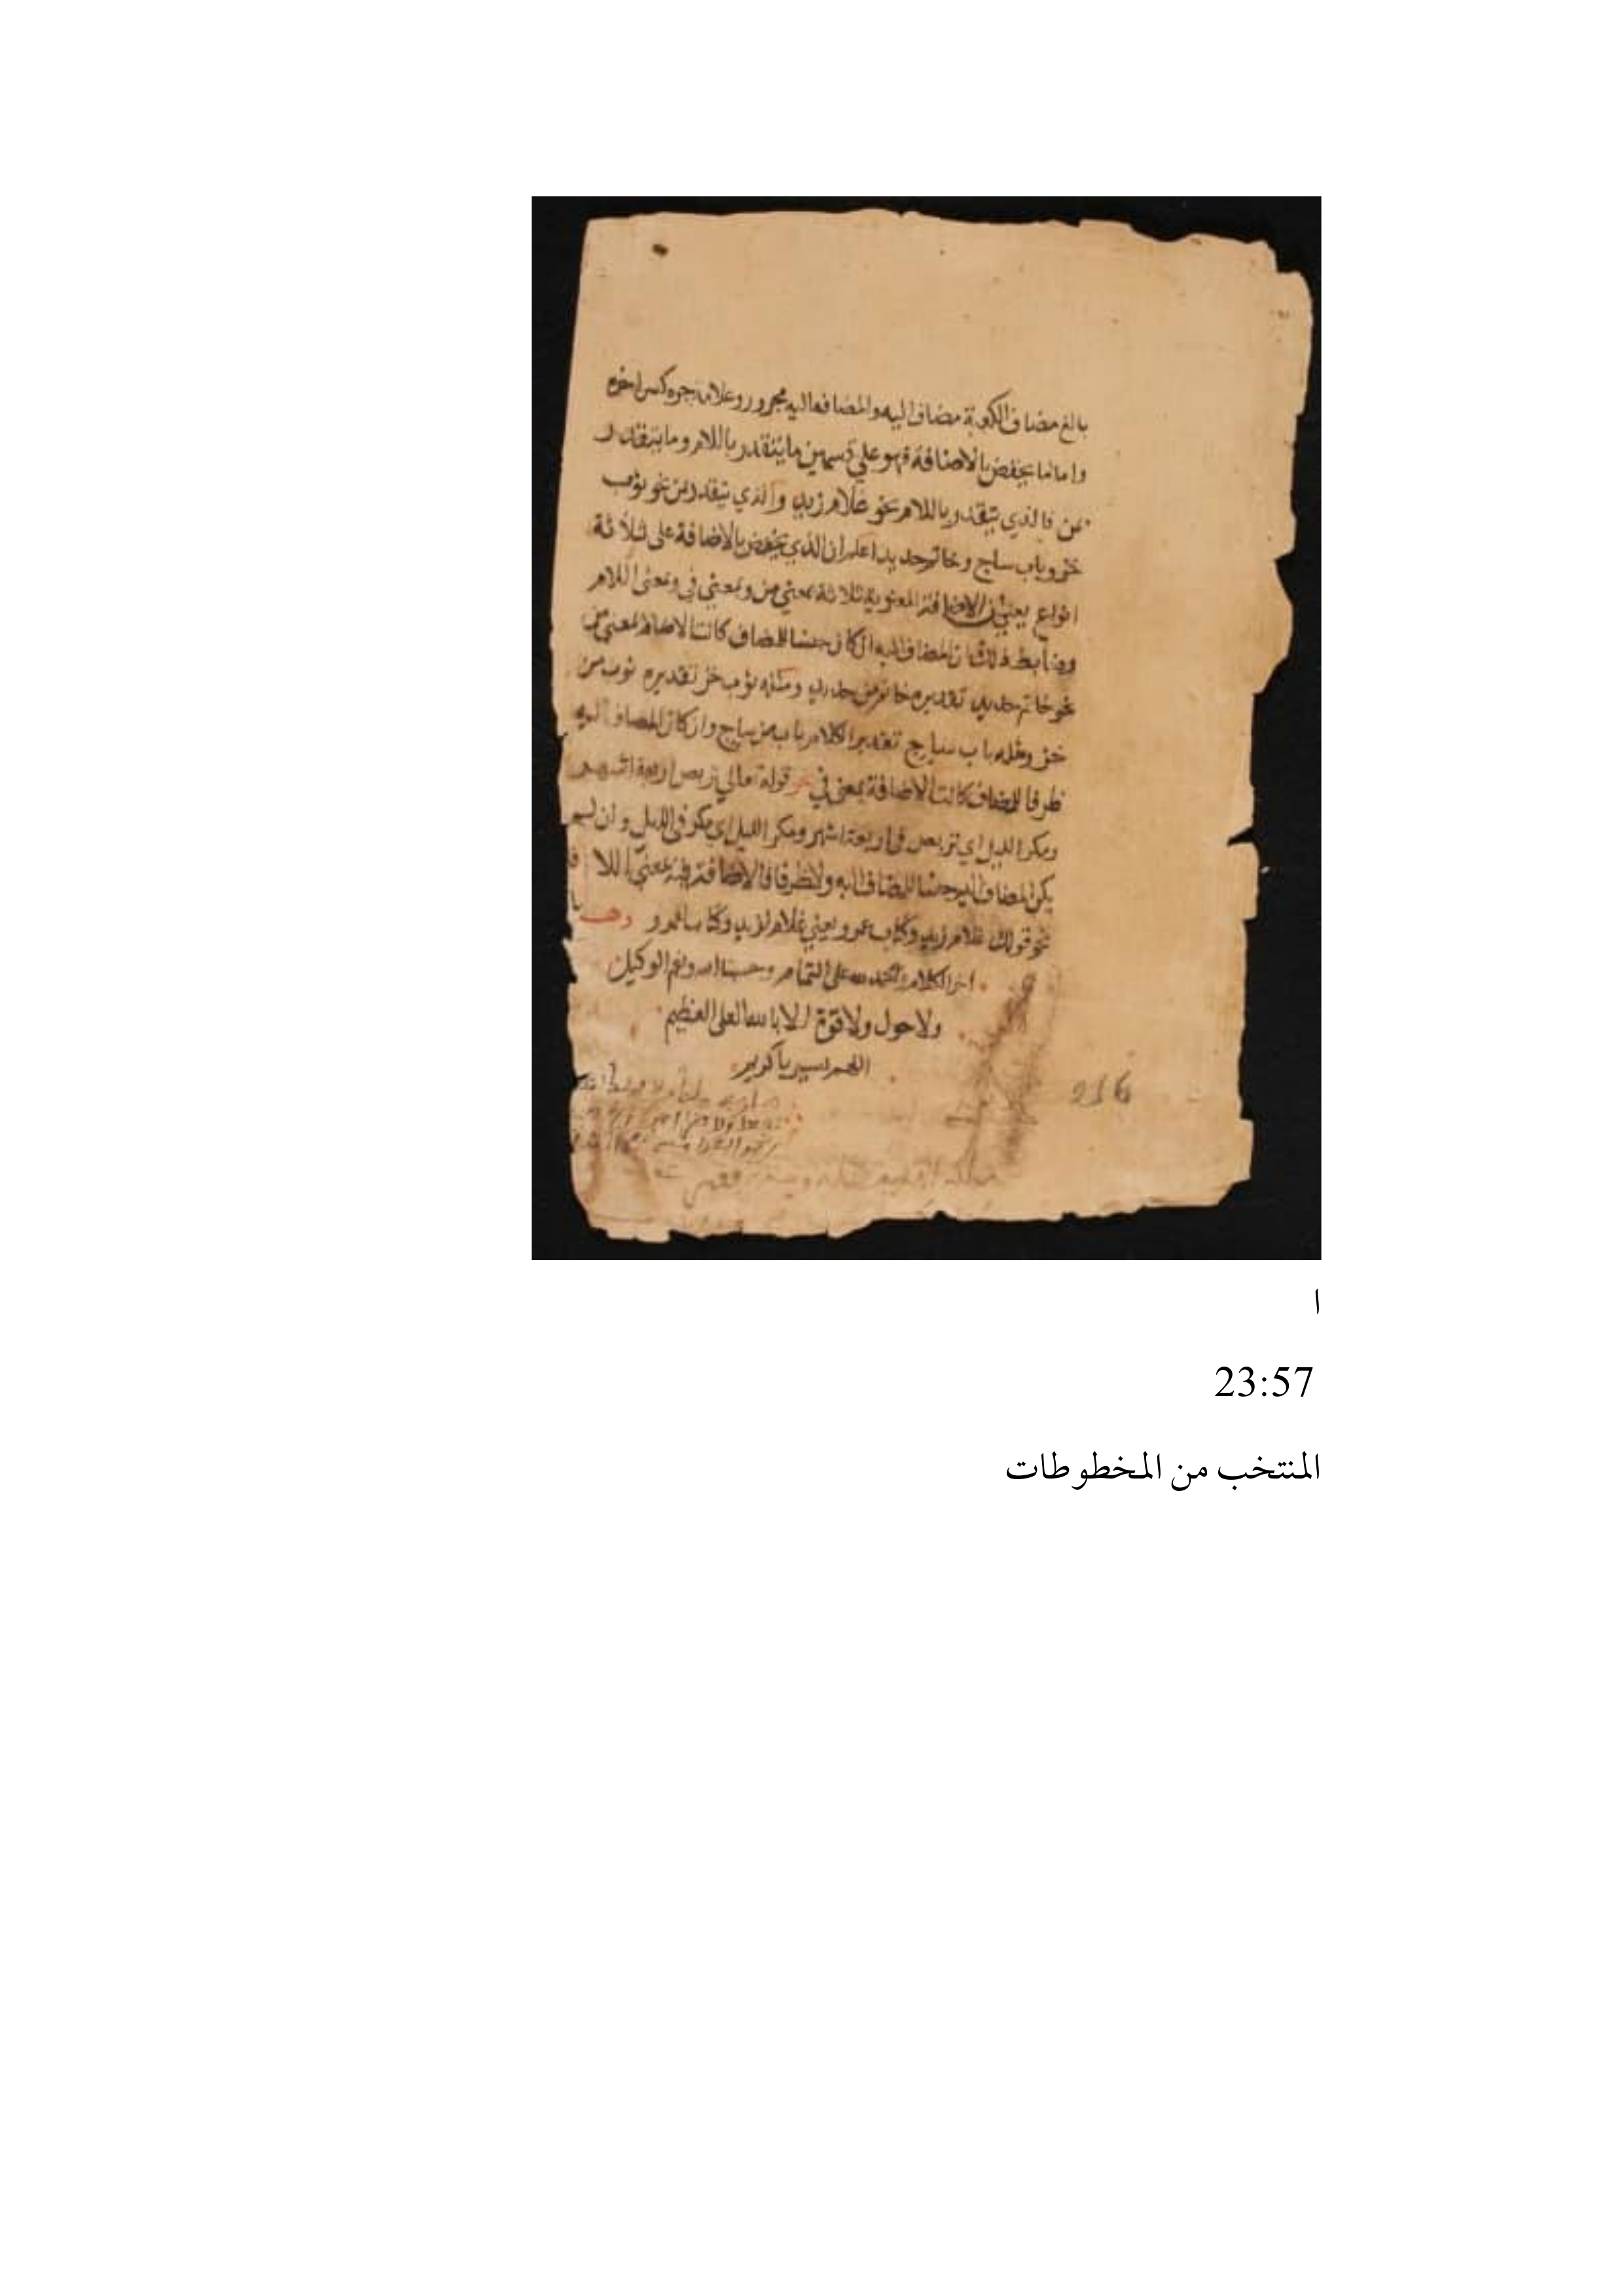 بالغ مضاف الكعبة مضاف اليه والمضاف اليه مجرور وعلامة جره كسر اخره
واما ما يخفض بالاضافة فهو على قسمين ما يتقدر باللام وما يتقدر
بمن فالذي يتقدر باللام نحو غلام زيد والذي يتقدر بمن نحو ثوب
خز وباب ساج وخاتم حديد اعلم ان الذي يخفض بالاضافة على ثلاثة
انواع يعني ان الاضافة المعنوية ثلاثة بمعنى من وبمعنى في وبمعنى اللام
وضابط ذلك ان المضاف اليه ان كان جنسا للمضاف كانت الاضافة بمعنى من
نحو خاتم حديد تقديره خاتم من حديد ومثله ثوب خز تقديره ثوب من
خز ومثله باب ساج تقدير الكلام باب من ساج وان كان المضاف اليه
ظرفا للمضاف كانت الاضافة بمعنى في نحو قوله تعالى تربص اربعة اشهر
ومكر الليل اي تربص في اربعة اشهر ومكر الليل اي مكر في الليل وان لم
يكن المضاف اليه جنسا للمضاف اليه ولا ظرفا فالاضافة فيه بمعنى اللا
نحو قولك غلام زيد وكتاب عمرو يعني غلام لزيد وكتاب لعمرو
اخر الكلام والحمد لله على التمام وحسبنا الله ونعم الوكيل
ولا حول ولا قوة الا بالله العلي العظيم
اللهم يسر يا كريم
216
ا
23:57
المنتخب من المخطوطات